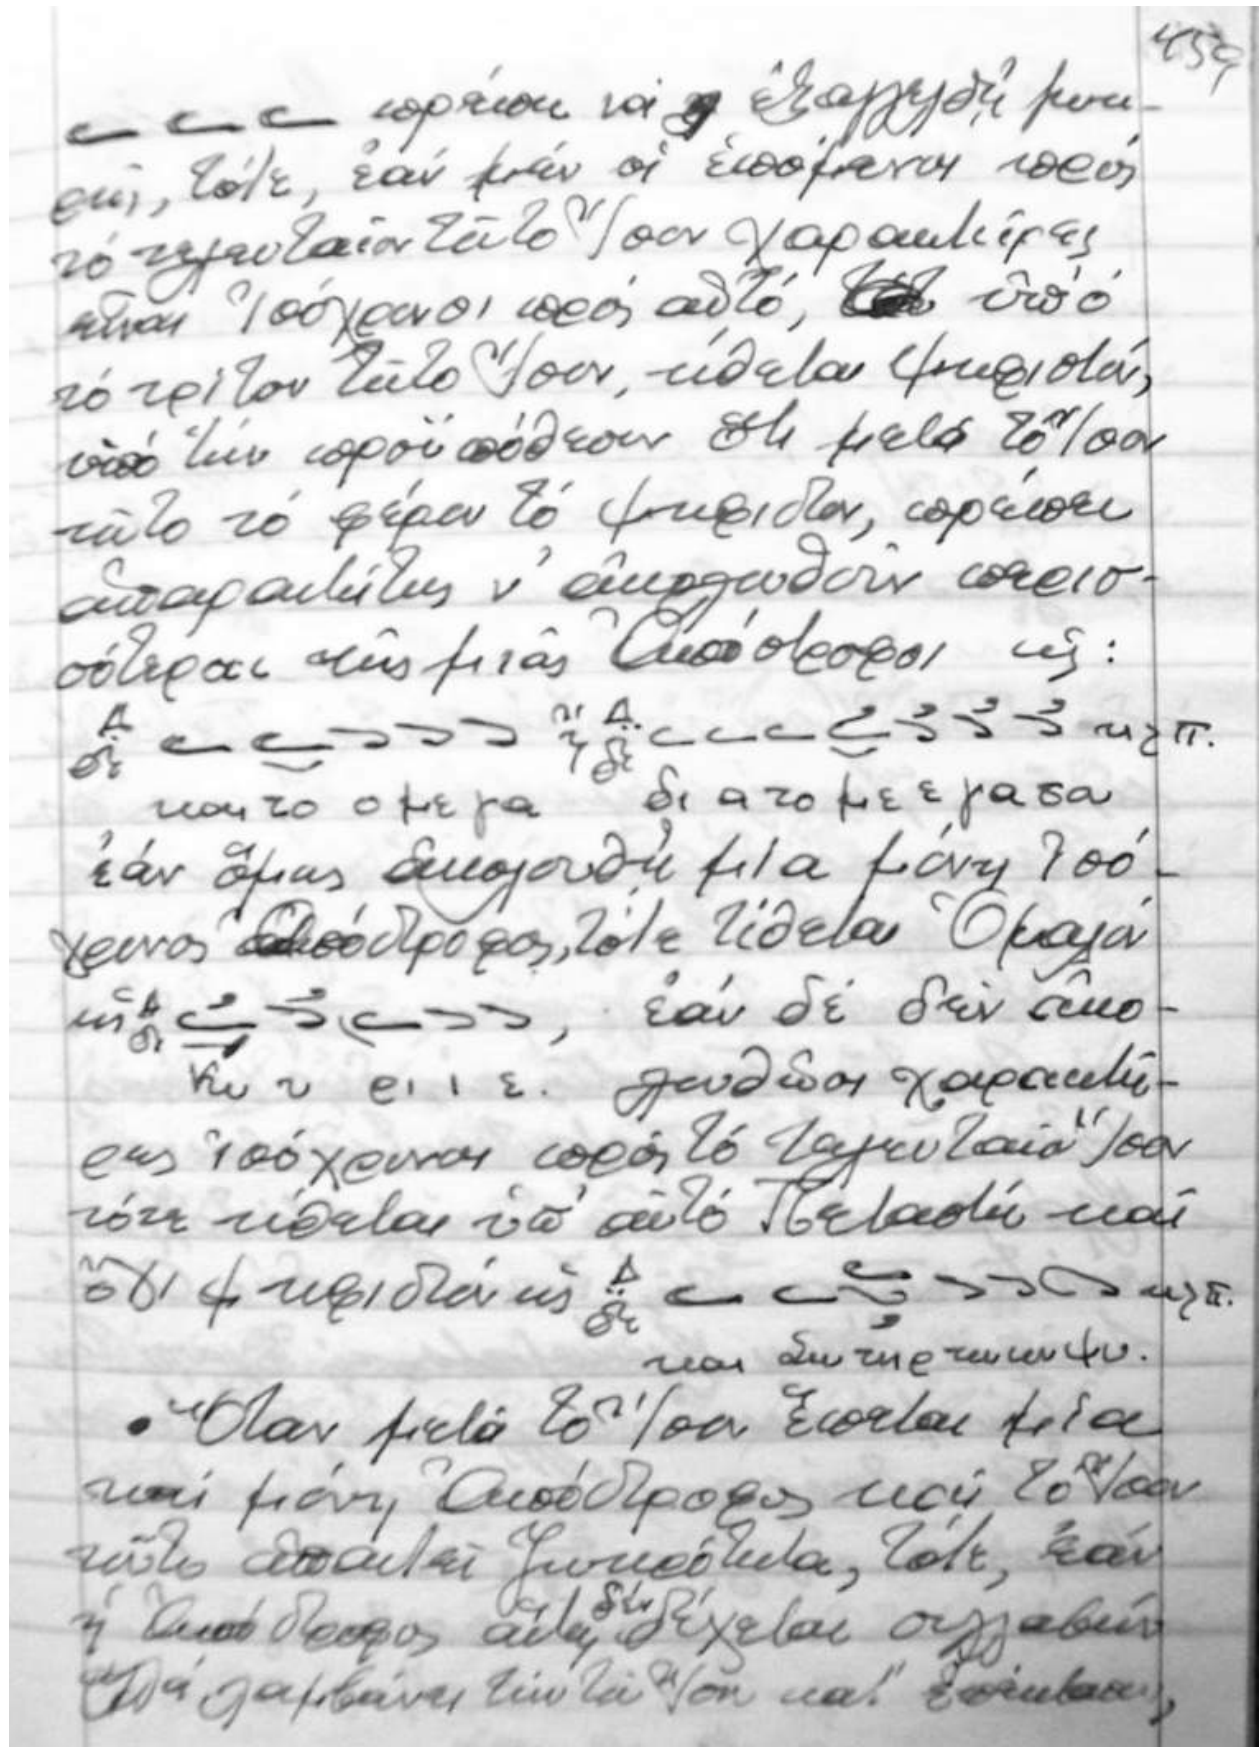 459
πρέπει νά ἐξαγγελθῇ ζωη-
ρῶς, τότε, ἐάν μέν οἱ ἑπόμενοι πρός
τό τελευταῖον τοῦτο Ἴσον χαρακτῆρες
εἶναι ἰσόχρονοι πρός αὐτό, ὑπό
τό τρίτον τοῦτο Ἴσον, τίθεται ψηφιστόν,
ὑπό τήν προϋπόθεσιν ὅτι μετά τό Ἴσον
τοῦτο τό φέρον τό ψηφιστόν, πρέπει
ἀπαραιτήτως ν' ἀκολουθοῦν περισ-
σότεραι τῆς μιᾶς Ἀπόστροφοι ὡς:
Δ δι Δ δι κλπ.
και το ο με γα δι α το με ε γα σα
ἐάν ὅμως ἀκολουθῇ μία μόνη ἰσό-
χρονος Ἀπόστροφος, τότε τίθεται Ὁμαλόν
ὡς Δ δι , ἐάν δέ δέν ἀκο-
Κυ υ ρι ι ε. λουθῶσι χαρακτῆ-
ρες ἰσόχρονοι πρός τό τελευταῖο Ἴσον
τότε τίθεται ὑπ' αὐτό Πεταστή καί
ὄχι ψηφιστόν ὡς Δ δι κλπ.
και Σω τη ρ των ψυ.
• Ὅταν μετά τό Ἴσον ἕπεται μία
καί μόνη Ἀπόστροφος καί τό Ἴσον
τοῦτο ἀπαιτεῖ ζωηρότητα, τότε, ἐάν
ἡ Ἀπόστροφος αὕτη δέν δέχεται συλλαβήν
θά λαμβάνει τοῦ Ἴσον